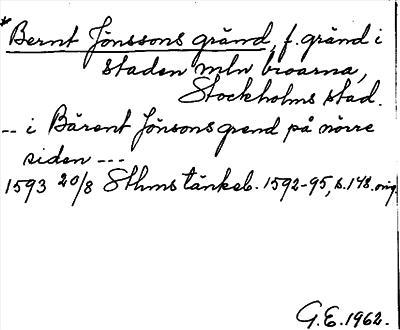 * Bernt Jönssons gränd, f. gränd i
staden mln broarna,
Stockholms stad.
-- i Bärent Jönsons grend på nörre
siden ---
1593 20/8 Sthms tänkeb. 1592-95, s. 148. orig.
G.E. 1962.